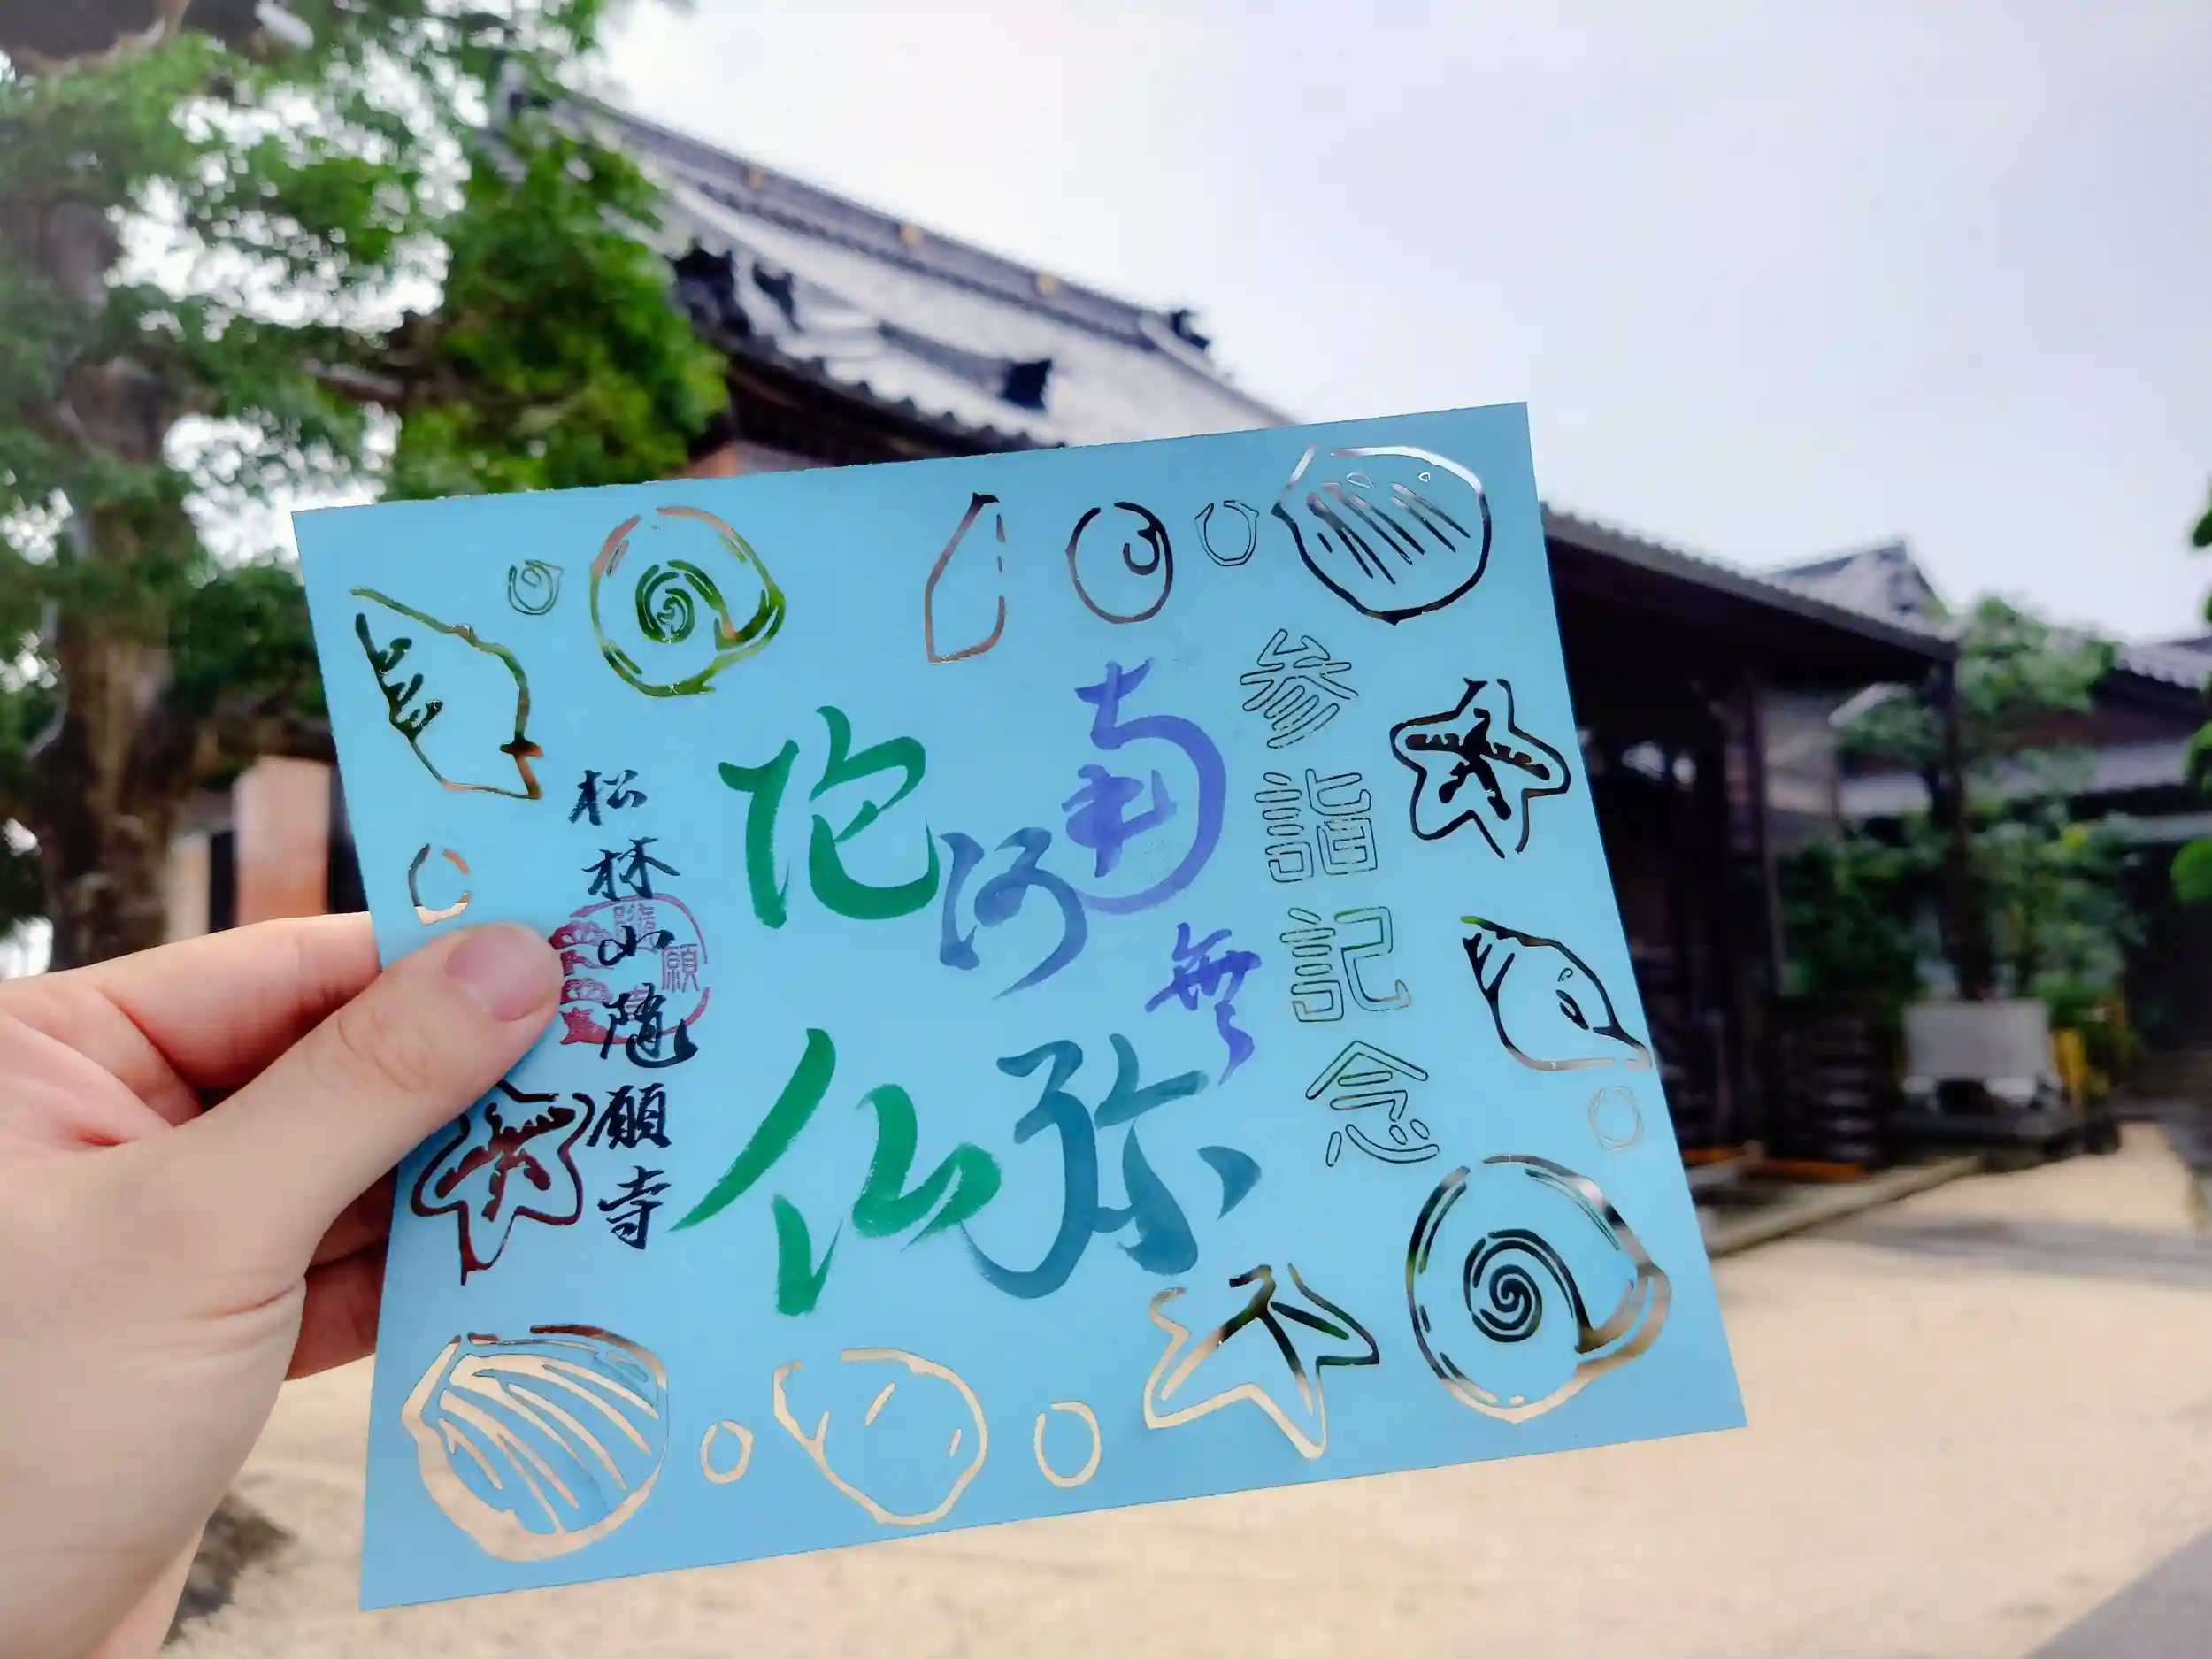 参詣記念
南無
阿弥
陀仏
松林山隨願寺